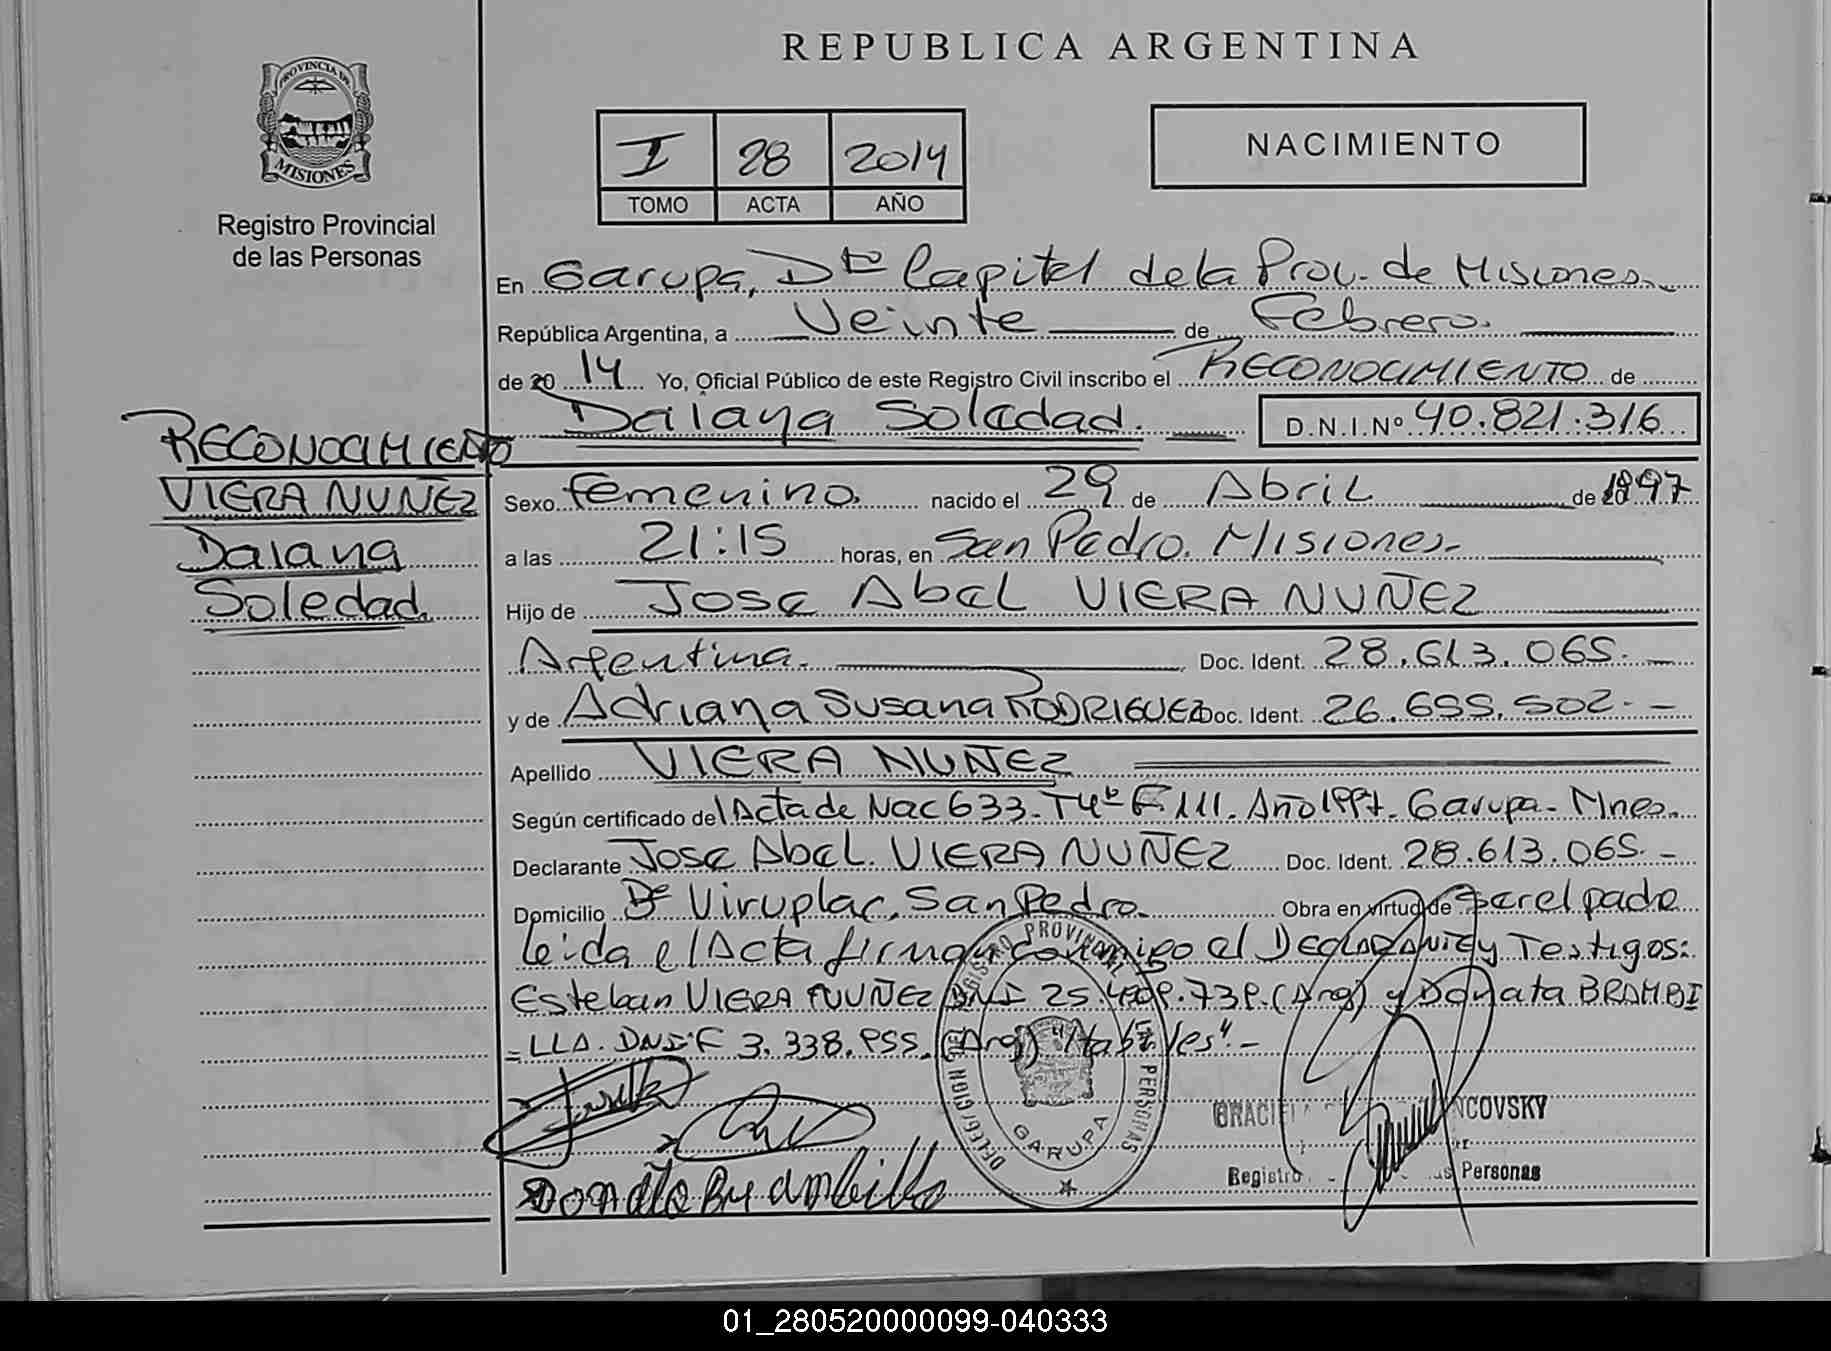 REPUBLICA ARGENTINA
PROVINCIA DE
MISIONES
Registro Provincial
de las Personas
I 28 2014
TOMO ACTA AÑO
NACIMIENTO
En Garupa, Dto Capital de la Prov. de Misiones.
República Argentina, a Veinte de Febrero.
de 20 14 Yo, Oficial Público de este Registro Civil inscribo el RECONOCIMIENTO de
Daiana Soledad. D.N.I.Nº 40.821.316
RECONOCIMIENTO
VIERA NUÑEZ
Daiana
Soledad.
Sexo femenino. nacido el 29 de Abril de 1997
a las 21:15 horas, en San Pedro. Misiones.
Hijo de Jose Abel VIERA NUÑEZ
Argentina. Doc. Ident. 28.613.065.
y de Adriana Susana RODRIGUEZ Doc. Ident. 26.655.502.
Apellido VIERA NUÑEZ
Según certificado del Acta de Nac 633. T4º F 111. Año 1997. Garupa - Mnes.
Declarante Jose Abel. VIERA NUÑEZ Doc. Ident. 28.613.065.
Domicilio Bº Viruplac, San Pedro. Obra en virtud de ser el padre
Leida el Acta firman conmigo el DECLARANTE y Testigos:
Esteban VIERA NUÑEZ DNI 25. (Arg) y Donata BRAMBI
-LLA. DNI F 3.338. (Arg) "Habiles" -
DELEGACION DEL REGISTRO PROVINCIAL DE LAS PERSONAS
GARUPA
NCOVSKY
Registro Personas
Donata Brambilla
01_280520000099-040333